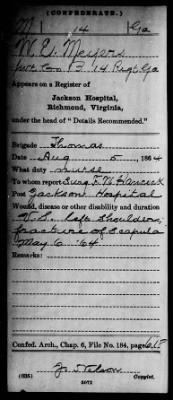 (CONFEDERATE.)
M 14 Ga
W. E. Meyers
Pvt Co. B. 14 Regt Ga
Appears on a Register
of
Jackson Hospital,
Richmond, Virginia,
under the head of "Details Recommended."
Brigade Thomas
Date Aug 5, 1864
What duty nurse
To whom report Surg. F. W. Hancock
Post Jackson Hospital
Wound, disease or other disability and duration
V. S. left shoulder,
fracture of Scapula
May 6 '64
Remarks:
Confed. Arch., Chap. 6, File No. 184, page 615
(635) Copyist.